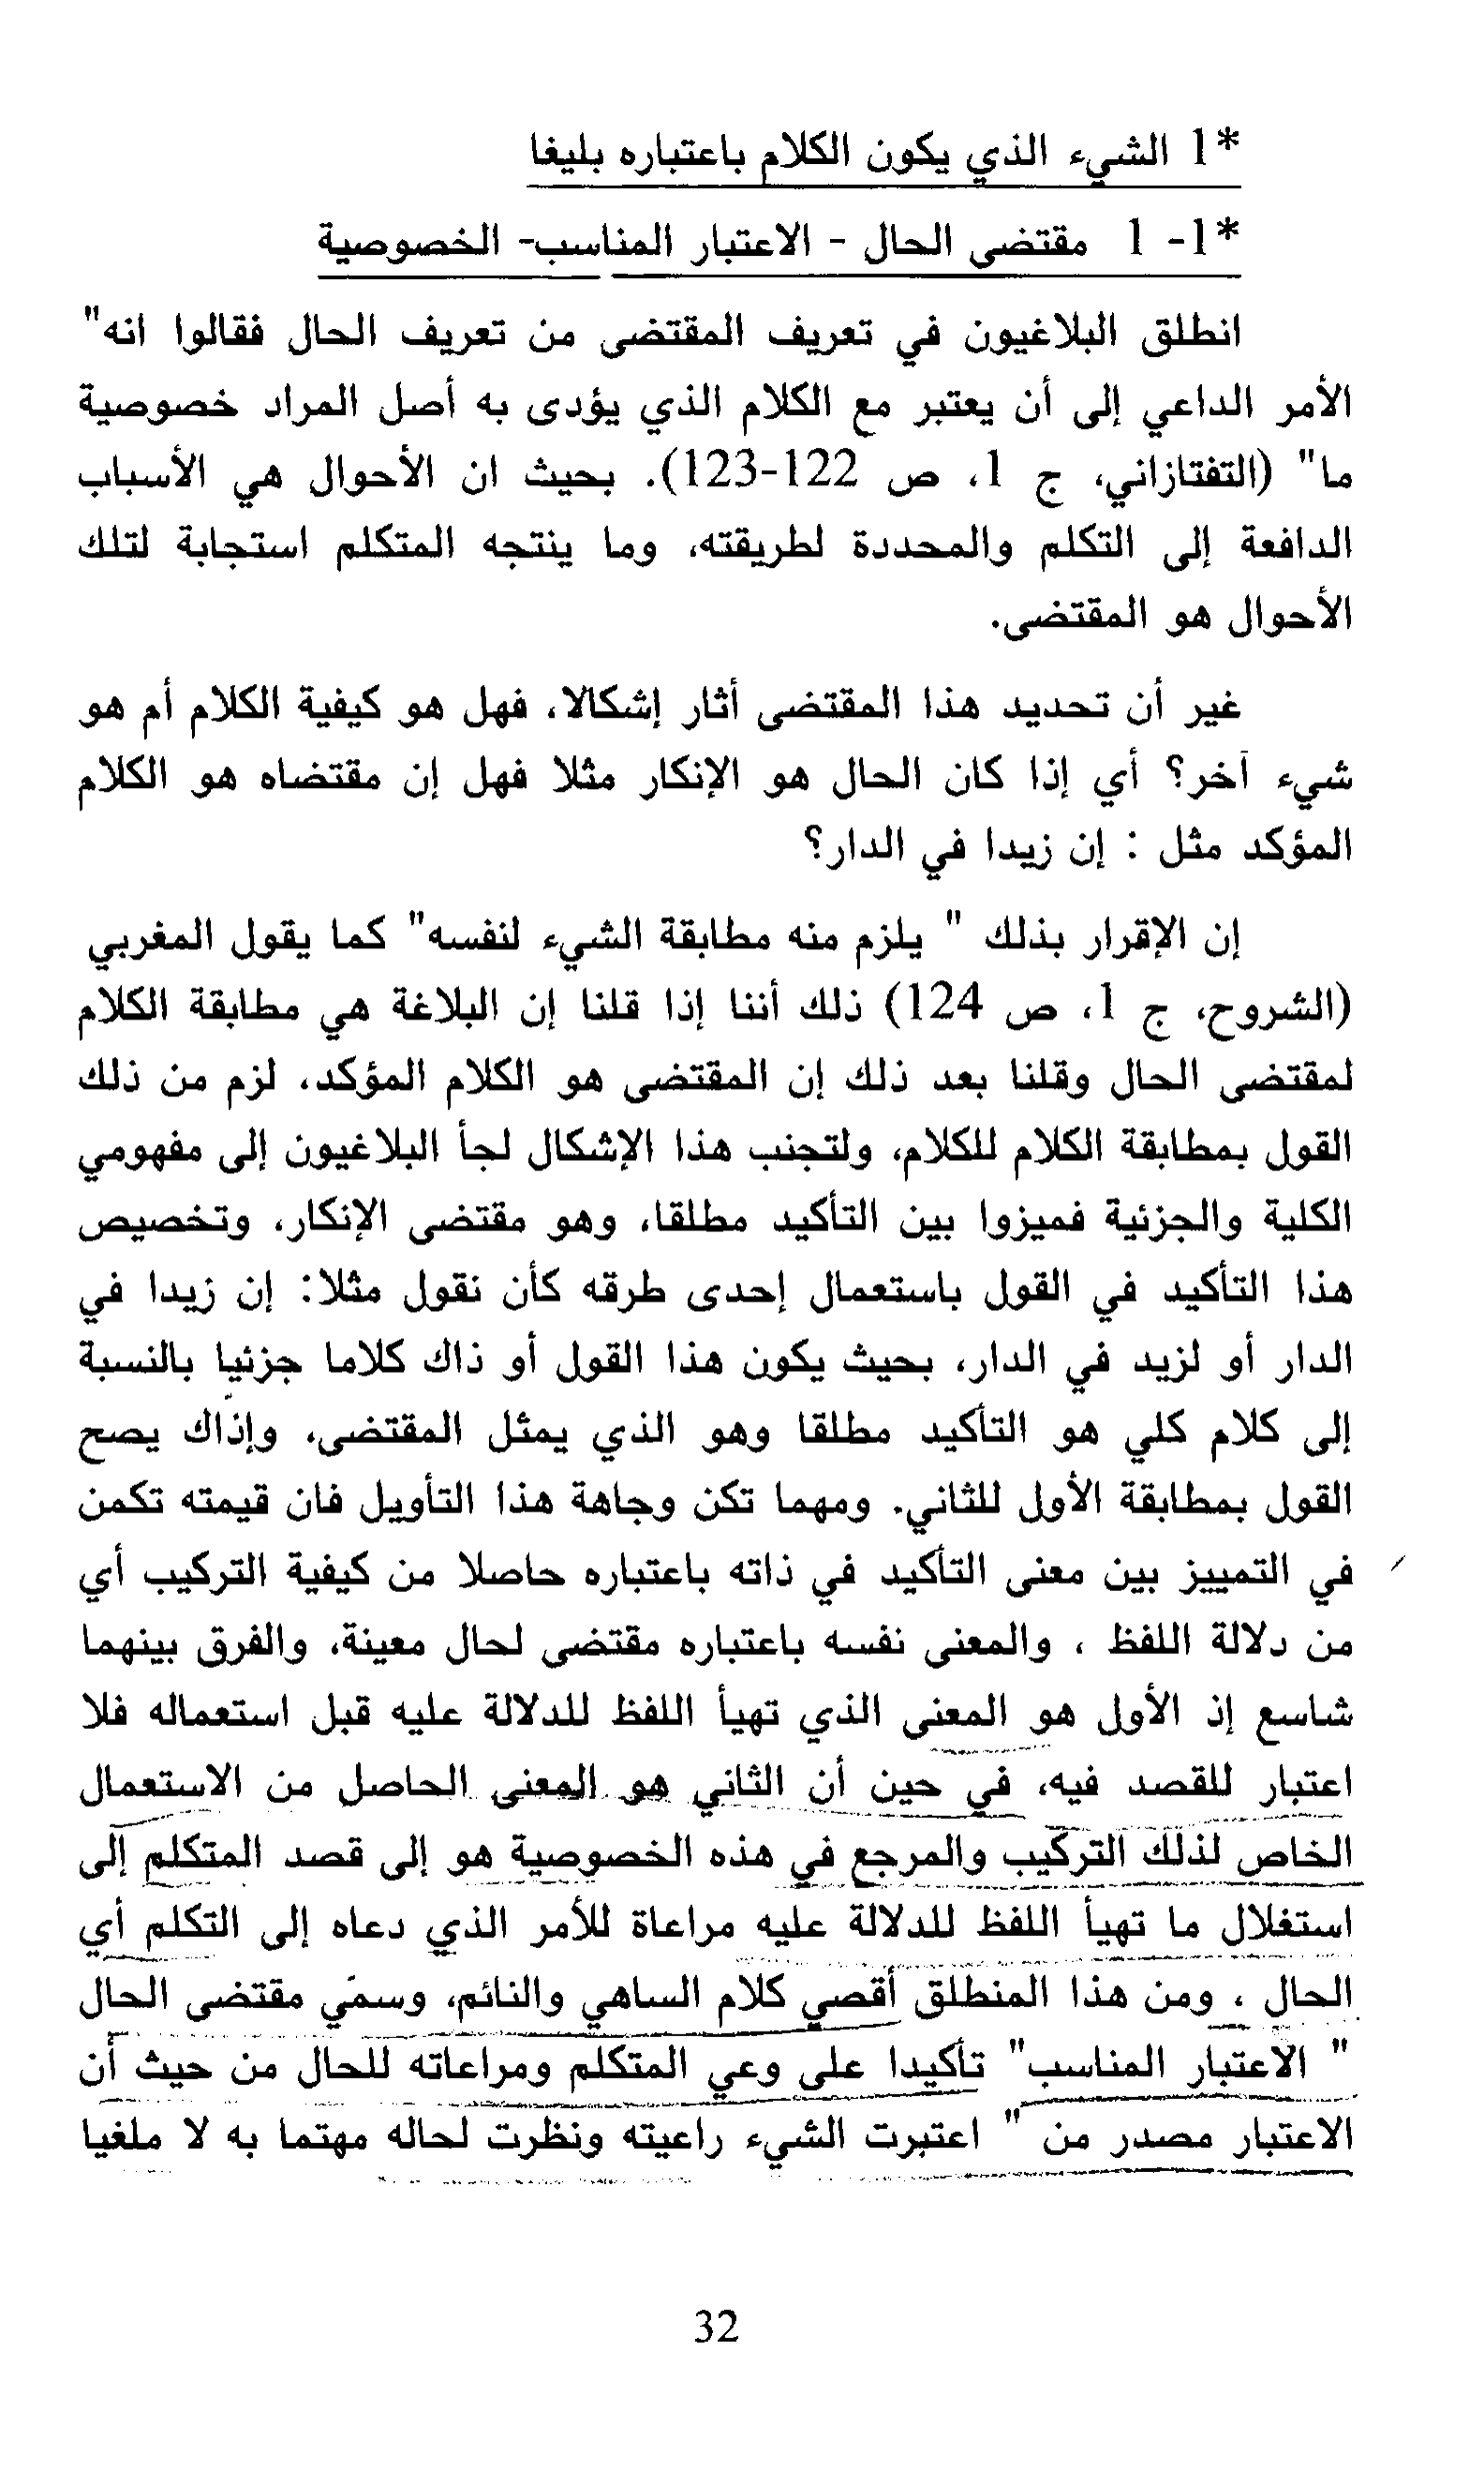 *1 الشيء الذي يكون الكلام باعتباره بليغا
*1- 1 مقتضى الحال - الاعتبار المناسب- الخصوصية
انطلق البلاغيون في تعريف المقتضى من تعريف الحال فقالوا انه"
الأمر الداعي إلى أن يعتبر مع الكلام الذي يؤدى به أصل المراد خصوصية
ما" (التفتازاني، ج 1، ص 122-123). بحيث ان الأحوال هي الأسباب
الدافعة إلى التكلم والمحددة لطريقته، وما ينتجه المتكلم استجابة لتلك
الأحوال هو المقتضى.
غير أن تحديد هذا المقتضى أثار إشكالا، فهل هو كيفية الكلام أم هو
شيء آخر؟ أي إذا كان الحال هو الإنكار مثلا فهل إن مقتضاه هو الكلام
المؤكد مثل : إن زيدا في الدار؟
إن الإقرار بذلك " يلزم منه مطابقة الشيء لنفسه" كما يقول المغربي
(الشروح، ج 1، ص 124) ذلك أننا إذا قلنا إن البلاغة هي مطابقة الكلام
لمقتضى الحال وقلنا بعد ذلك إن المقتضى هو الكلام المؤكد، لزم من ذلك
القول بمطابقة الكلام للكلام، ولتجنب هذا الإشكال لجأ البلاغيون إلى مفهومي
الكلية والجزئية فميزوا بين التأكيد مطلقا، وهو مقتضى الإنكار، وتخصيص
هذا التأكيد في القول باستعمال إحدى طرقه كأن نقول مثلا: إن زيدا في
الدار أو لزيد في الدار، بحيث يكون هذا القول أو ذاك كلاما جزئيا بالنسبة
إلى كلام كلي هو التأكيد مطلقا وهو الذي يمثل المقتضى، وإذاك يصح
القول بمطابقة الأول للثاني. ومهما تكن وجاهة هذا التأويل فان قيمته تكمن
في التمييز بين معنى التأكيد في ذاته باعتباره حاصلا من كيفية التركيب أي
من دلالة اللفظ ، والمعنى نفسه باعتباره مقتضى لحال معينة، والفرق بينهما
شاسع إذ الأول هو المعنى الذي تهيأ اللفظ للدلالة عليه قبل استعماله فلا
اعتبار للقصد فيه، في حين أن الثاني هو المعنى الحاصل من الاستعمال
الخاص لذلك التركيب والمرجع في هذه الخصوصية هو إلى قصد المتكلم إلى
استغلال ما تهيأ اللفظ للدلالة عليه مراعاة للأمر الذي دعاه إلى التكلم أي
الحال ، ومن هذا المنطلق أقصي كلام الساهي والنائم، وسمّي مقتضى الحال
" الاعتبار المناسب" تأكيدا على وعي المتكلم ومراعاته للحال من حيث أن
الاعتبار مصدر من " اعتبرت الشيء راعيته ونظرت لحاله مهتما به لا ملغيا
32